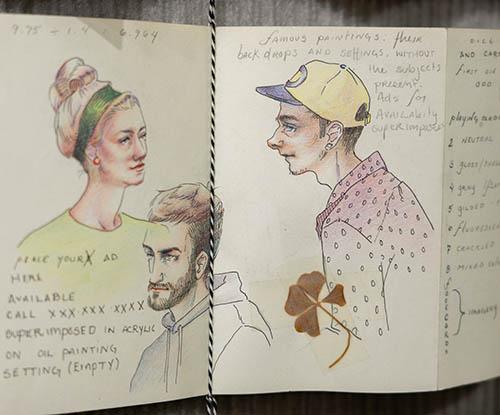 9.75 ÷ 1.4 = 6.964
PLACE YOUR X AD
HERE
AVAILABLE
CALL XXX-XXX-XXXX
SUPERIMPOSED IN ACRYLIC
ON OIL PAINTING
SETTING (EMPTY)
FAMOUS PAINTINGS. their
backdrops AND SETTINGS, WITHOUT
the subjects
present.
Ads for
AVAILABILITY
SUPERIMPOSED
AND CARD
FIRST
ODD
playing
2 NEUTRAL
3 GLOSS
4 GRAY
5 GILDED
7 CRACKLED
8 MIXED
IMAGERY